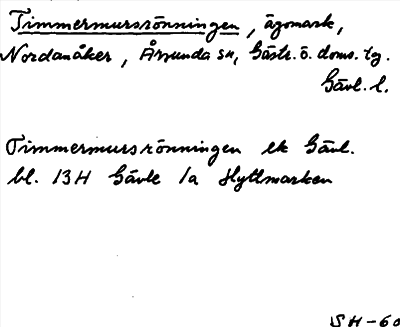 Timmermursrönningen, ägomark,
Nordanåker, Årsunda sn, Gästr. ö. doms. tg.
Gävl. l.
Timmermursrönningen ek Gävl.
bl. 13H Gävle 1a Hyttmarken
SH-60